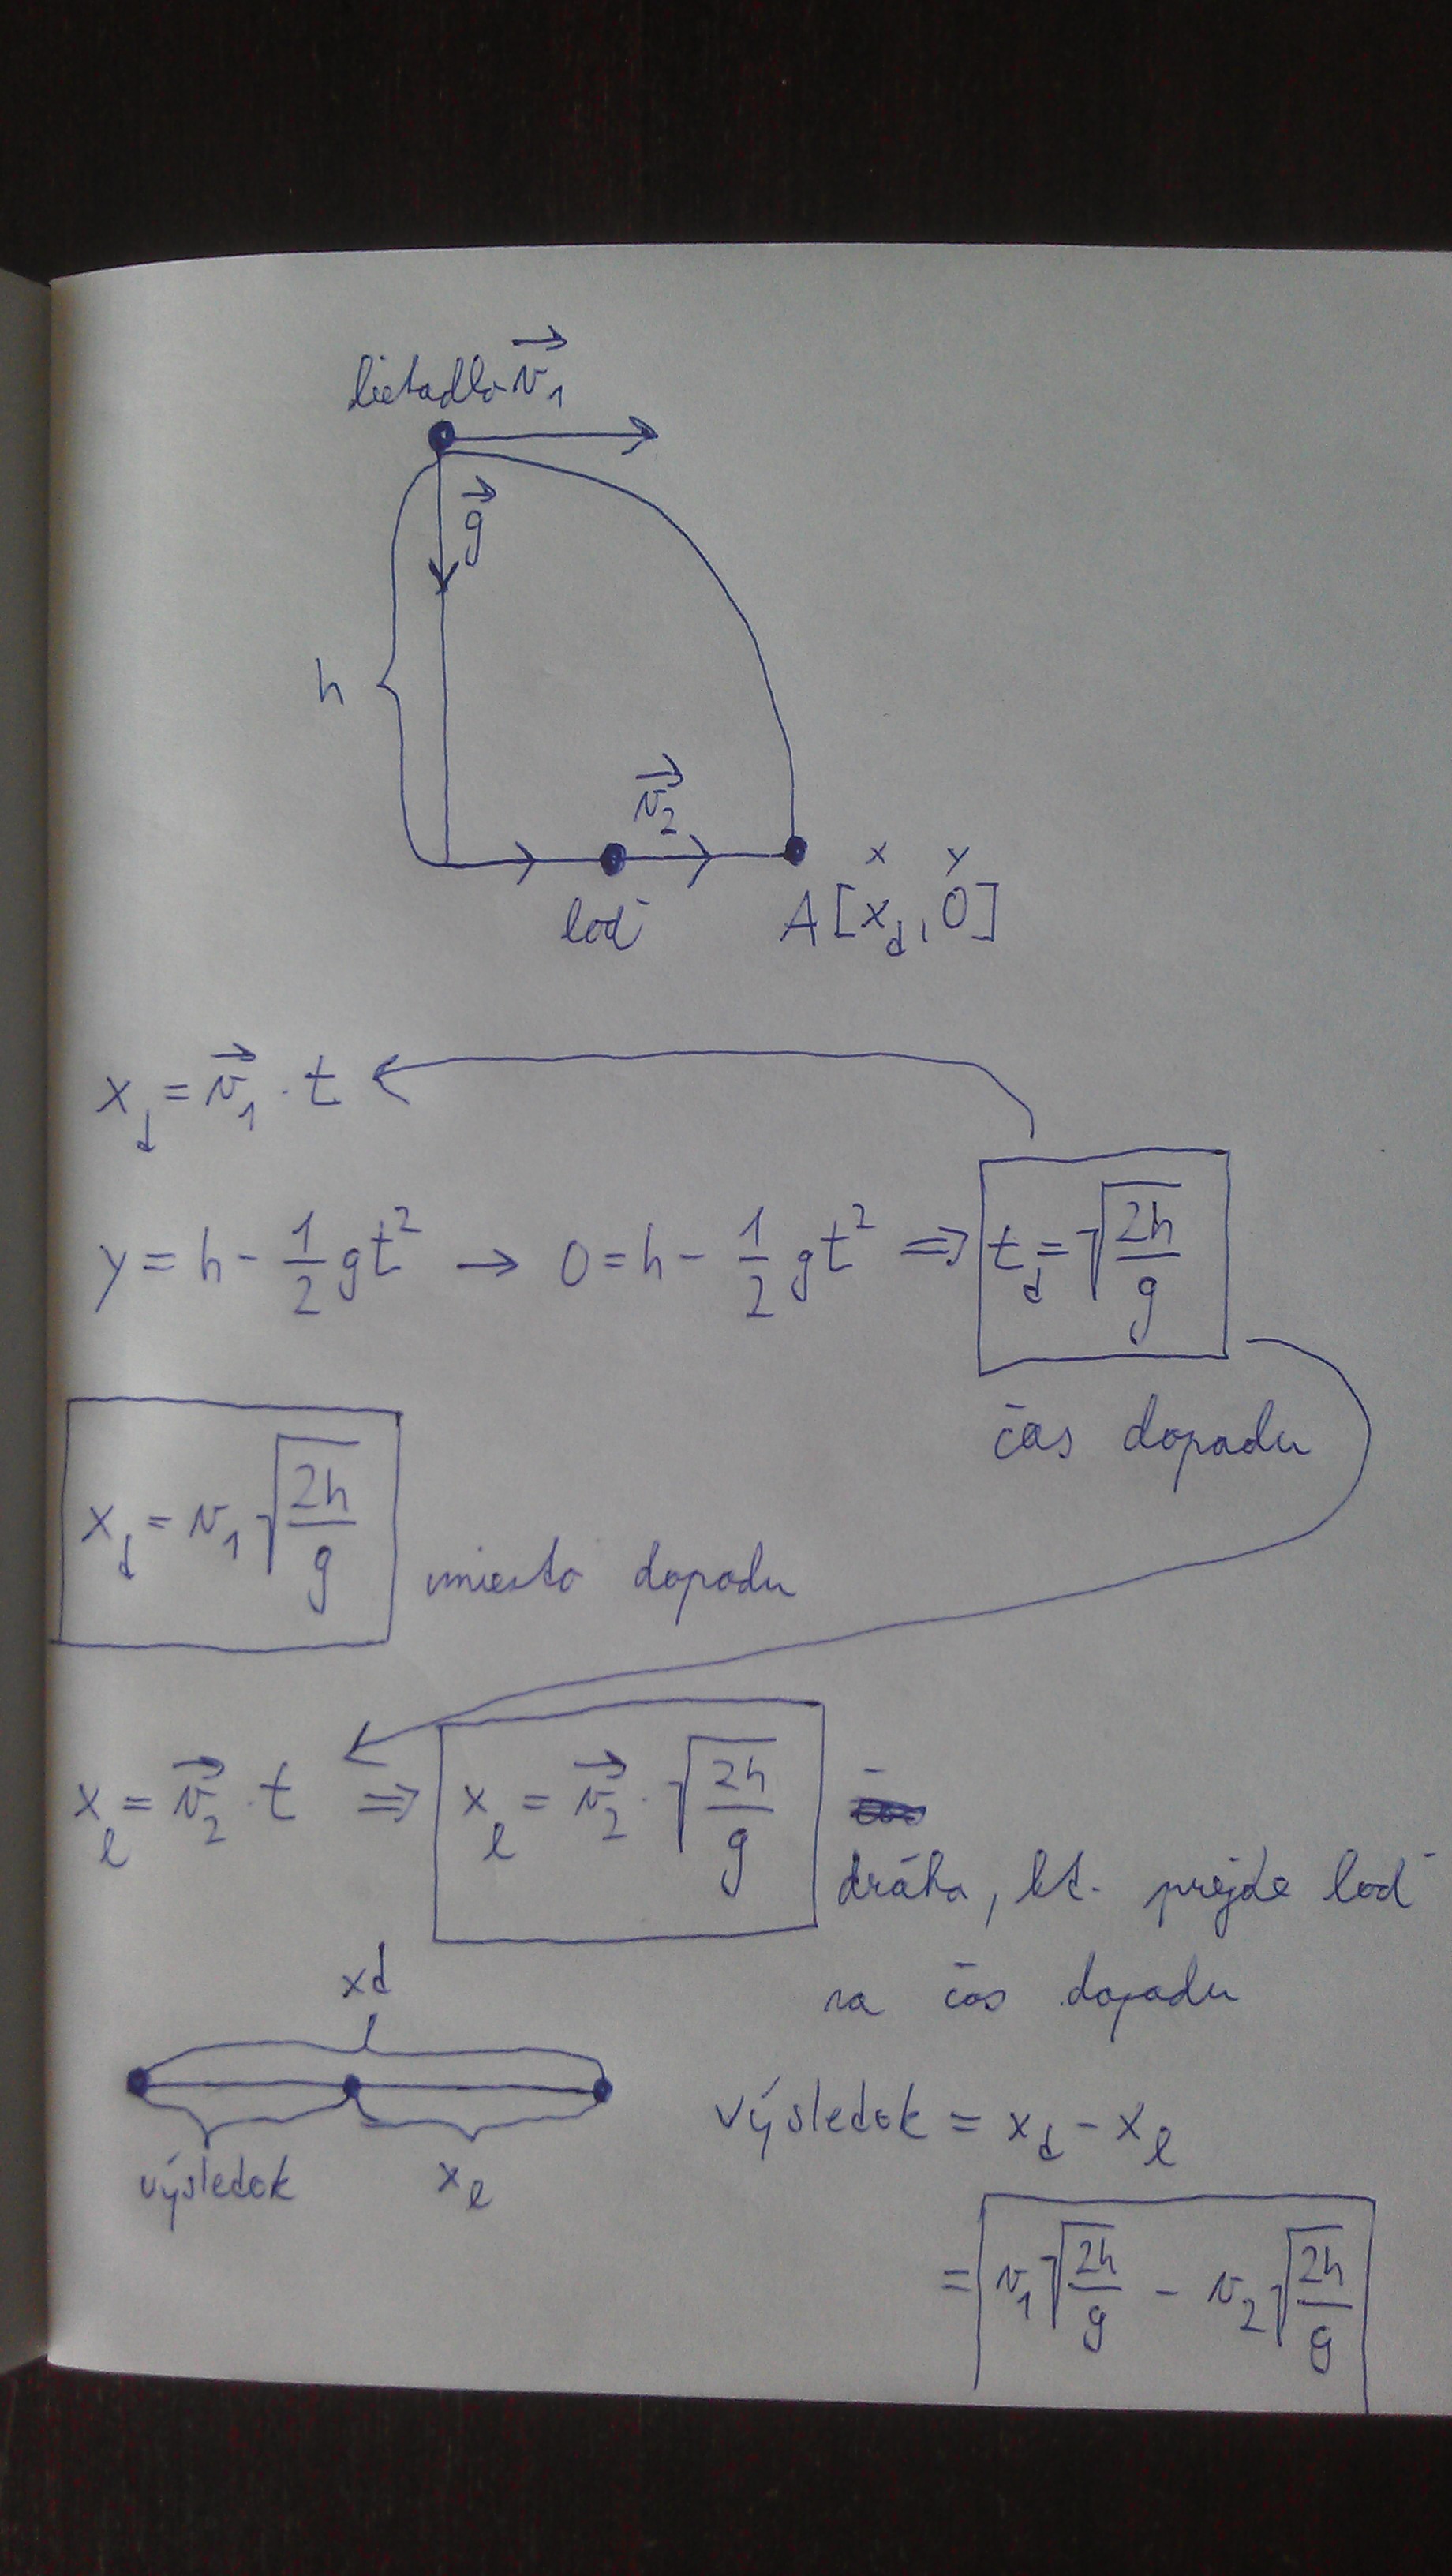 lietadlo v⃗₁
g⃗
h
v⃗₂
loď
x y
A [x_d, 0]
x_d = v⃗₁ · t
y = h - 1/2 gt² → 0 = h - 1/2 gt² ⇒ t_d = √(2h/g)
čas dopadu
x_d = v₁ √(2h/g) miesto dopadu
x_l = v⃗₂ · t ⇒ x_l = v⃗₂ · √(2h/g) -
dráha, kt. prejde loď
za čas dopadu
xd
výsledok x_l
výsledok = x_d - x_l
= v₁ √(2h/g) - v₂ √(2h/g)